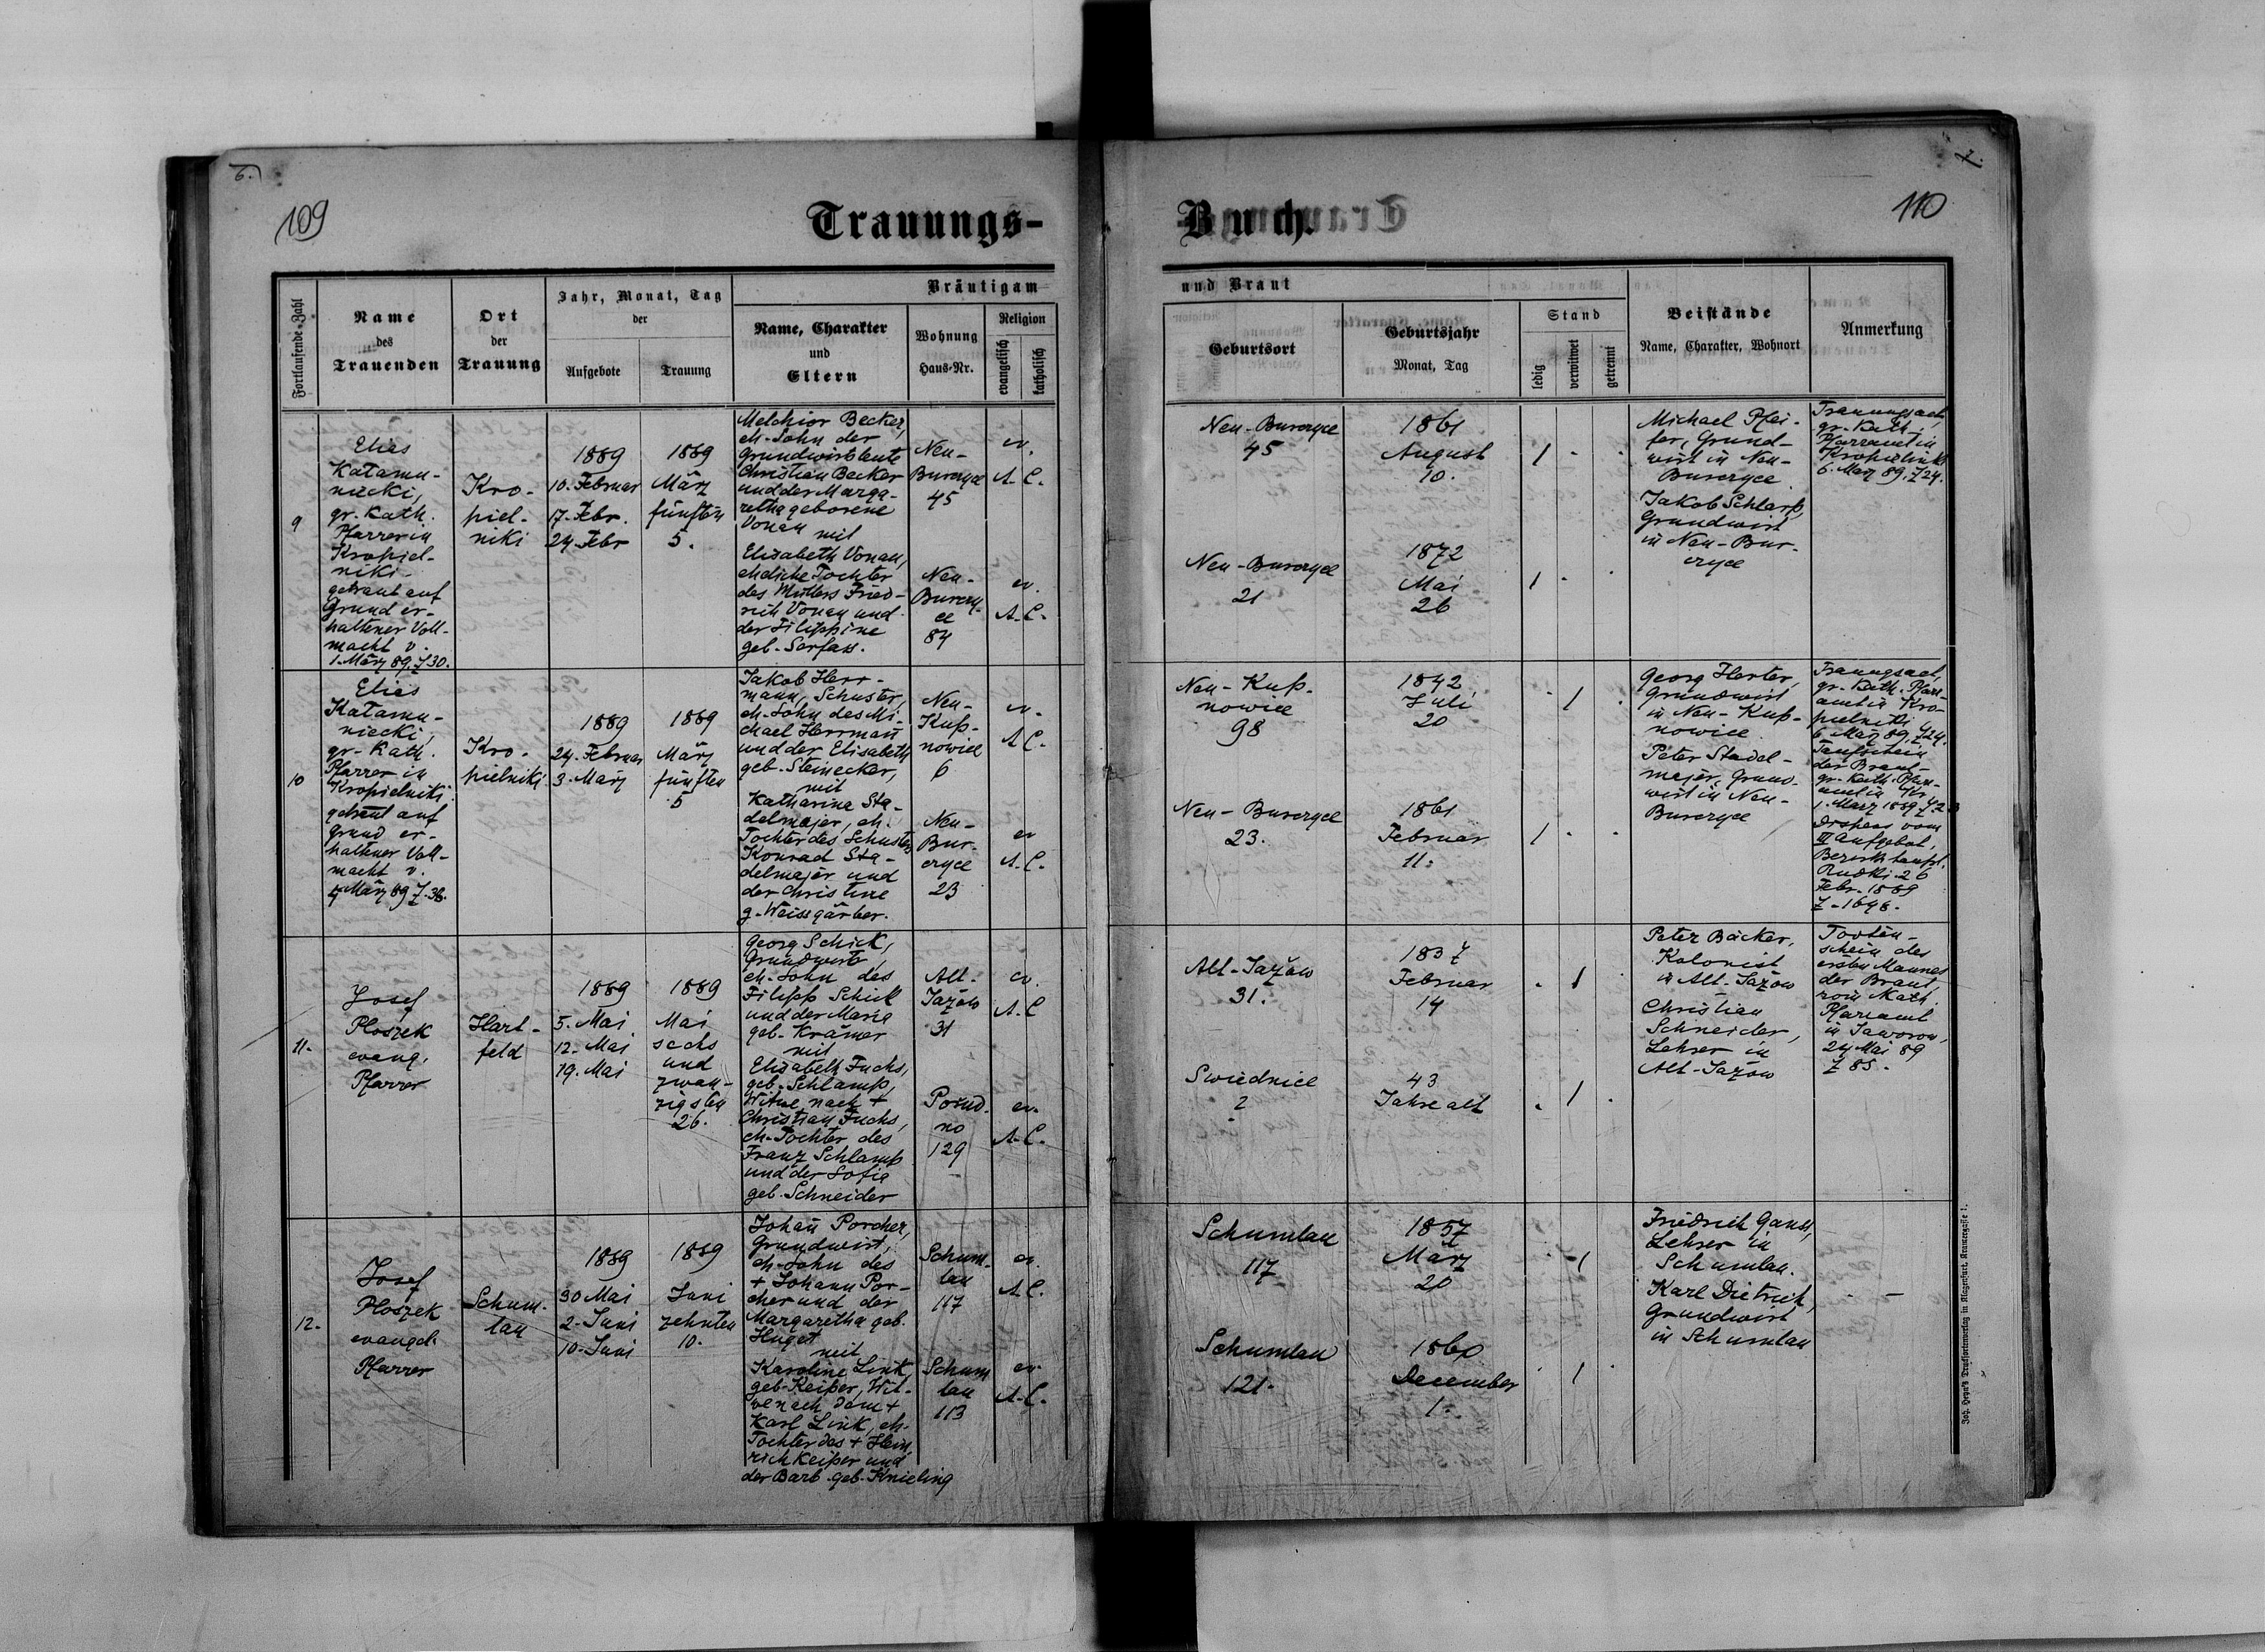 6.
109
Trauungs-
Fortlaufende-Zahl
Name
des
Trauenden
Ort
der
Trauung
Jahr, Monat, Tag
der
Aufgebote
Trauung
Bräutigam
Name, Charakter
und
Eltern
Wohnung
Haus-Nr.
Religion
evangelisch
katholisch
9
Elias
Katamu-
niecki,
gr. Kath.
Pfarrer in
Kropiel-
niki
getraut auf
Grund er-
haltener Voll-
macht v.
1. März 89. Z 30.
Kro-
piel-
niki
1889
10. Februar
17. Febr.
24. Febr
1889
März
fünften
5.
Melchior Becker,
eh. Sohn der
Grundwirtsleute
Christian Becker
und der Marga-
retha geborene
Vonau
mit
Elisabeth Vonau,
eheliche Tochter
des Müllers Fried-
rich Vonau und
der Filippine
geb. Sarfass.
Neu-
Burczyce
45
Neu-
Burczy-
ce
84
ev.
A. C.
ev.
A. C.
10
Elias
Katamu-
niecki,
gr. Kath.
Pfarrer in
Kropielniki
getraut auf
Grund er-
haltener Voll-
macht v.
4 März 89 Z. 38.
Kro-
pielniki
1889
24. Februar
3. März
1889
März
fünften
5
Jakob Herr-
mann, Schuster,
eh. Sohn des Mi-
chael Herrmann
und der Elisabeth
geb. Steinecker,
mit
Katharina Sta-
delmajer, eh.
Tochter des Schusters
Konrad Sta-
delmajer und
der Christine
g. Weissgärber.
Neu-
Kup-
nowice
6
Neu-
Bur-
czyce
23
ev.
A. C.
ev
A. C.
11.
Josef
Ploszek
evang.
Pfarrer
Hart-
feld
1889
5. Mai
12. Mai
19. Mai
1889
Mai
sechs
und
zwan-
zigsten
26.
Georg Schick,
Grundwirt,
eh. Sohn des
Filipp Schick
und der Maria
geb. Krämer
mit
Elisabeth Fuchs,
geb. Schlamp,
Witwe nach +
Christian Fuchs,
eh. Tochter des
Franz Schlamp
und der Sofia
geb. Schneider
Alt-
Jażow
31
no
129
ev.
A. C
ev.
A. C.
12.
Josef
Ploszek
evangel.
Pfarrer
Schum-
lau
1889
30 Mai
2. Juni
10. Juni
1889
Juni
zehnten
10.
Johann Porcher,
Grundwirt,
eh. Sohn des
+ Johann Por-
cher und der
Margaretha geb.
Huget
mit
Karoline Link,
geb. Keiper, Wit-
we nach dem +
Karl Link, eh.
Tochter des + Hein-
rich Keiper und
der Barb. geb. Knieling
Schum-
lau
117
Schum
lau
113
ev.
A. C.
ev.
A. C.
7.
110
Buch.
und Braut
Geburtsort
Geburtsjahr
Monat, Tag
Stand
ledig
verwitwet
getrennt
Beistände
Name, Charakter, Wohnort
Anmerkung
Neu-Burczyce
45
1861
August
10.
Neu-Burczyce
21
1872
Mai
26
Michael Pfei-
fer, Grund-
wirt in Neu-
Burczyce
Jakob Schlarp,
Grundwirt
in Neu-Bur-
czyce
Trauungsact,
gr. Kath.
Pfarramt in
Kropielniki
6. März 89. Z 24.
Neu-Kup-
nowice
98
1842
Juli
20
Neu-Burczyce
23.
1861
Februar
11.
Georg Herter,
Grundwirt
in Neu-Kup-
nowice
Peter Stadel-
majer, Grund-
wirt in Neu-
Burczyce
Trauungsact,
gr. Kath. Pfarr-
amt in Kro-
pielniki
6. März 89. Z 24.
Taufschein
der Braut
gr. Kath. Pfarr-
amt in Kr.
1. März 1889 Z 2
Dispens vom
III Aufgebot,
Bezirkshauptm.
Rudki 26
Febr. 1889
Z. 1648.
Alt-Jażow
31.
1837
Februar
14
Swiednice
2
43
Jahre alt
Peter Bäcker,
Kolonist
in Alt-Jażow
Christian
Schneider,
Lehrer in
Alt-Jażow
Todten-
schein des
ersten Mannes
der Braut,
röm. Kath.
Pfarramt
in Jaworow,
24 Mai 89
Z 85.
Schumlau
117
1857
März
20
Schumlau
121.
1860
December
1.
Friedrich
Lehrer in
Schumlau.
Karl Dietrich,
Grundwirt
in Schumlau
Joh. Heyn's Drucksortenverlag in Klagenfurt, Kramergasse 1.